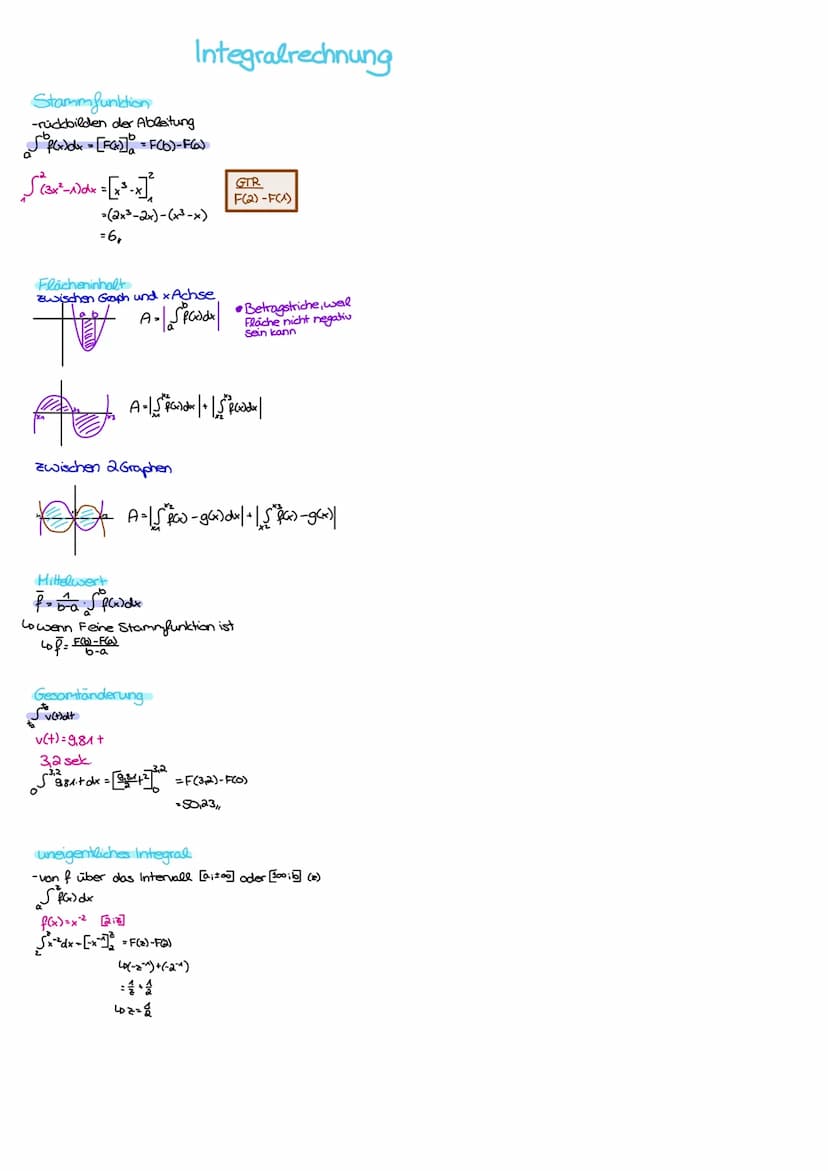 Integralrechnung
Stammfunktion
-rückbilden der Ableitung
a∫b f(x)dx = [F(x)]ab = F(b)-F(a)
1∫2 (3x²-1)dx = [x³-x]12
=(2x³-2x)-(x³-x)
=6,,
GTR
F(2)-F(1)
Flächeninhalt
zwischen Graph und x Achse
a b
A=|a∫b f(x)dx|
• Betragstriche, weil
Fläche nicht negativ
sein kann
x1 x2 x3
A=|x1∫x2 f(x)dx|+|x2∫x3 f(x)dx|
zwischen 2 Graphen
A=|x1∫x2 f(x)-g(x)dx|+|x2∫x3 f(x)-g(x)|
Mittelwert
f̄ = 1/b-a · a∫b f(x)dx
↳ wenn F eine Stammfunktion ist
↳ f̄ = F(b)-F(a)/b-a
Gesamtänderung
∫ v(t)dt
v(t)=9,81t
3,2 sek
0∫3,2 9,81·t dx = [9,81/2 t²]03,2 = F(3,2)-F(0)
=50,23,,
uneigentliches Integral
-von f über das Intervall [a;±∞] oder [±∞;b] (z)
a∫z f(x)dx
f(x)=x⁻² [2;z]
2∫z x⁻²dx = [-x⁻¹]2z = F(z)-F(2)
↳(-z⁻¹)+(-2⁻¹)
= 1/z + 1/2
↳ z = 1/2